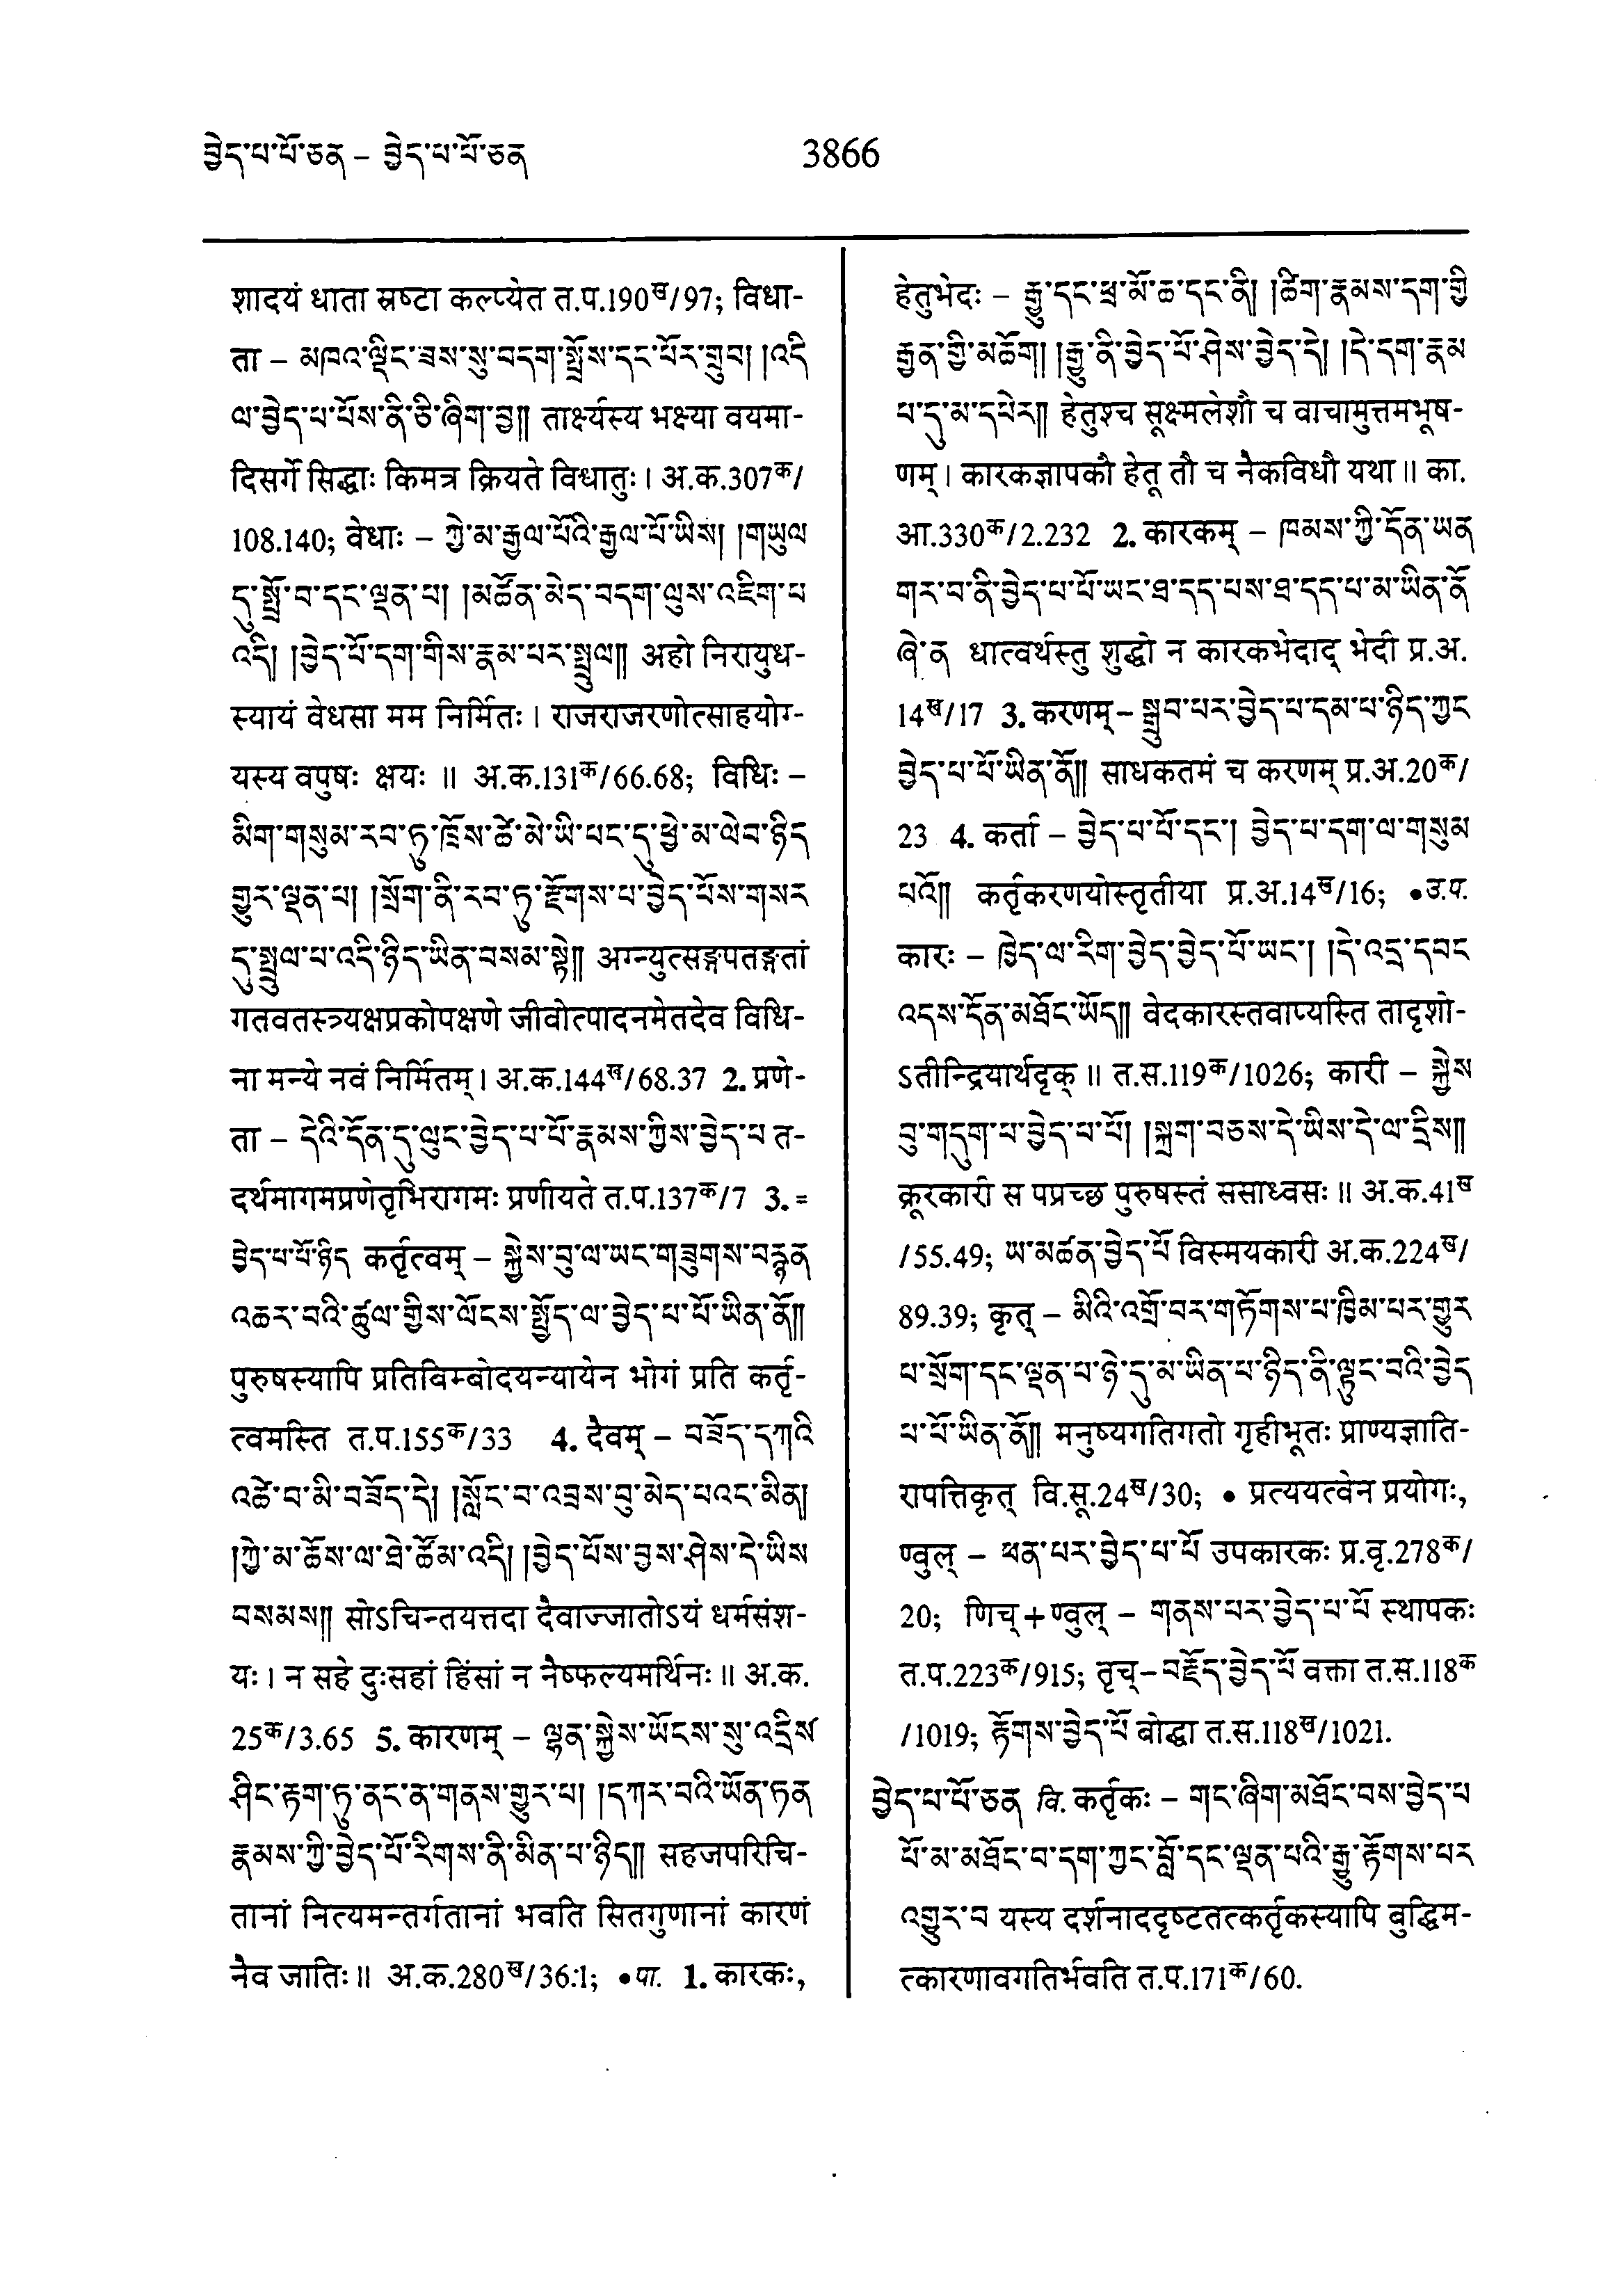 བྱེད་པ་པོ་ཅན – བྱེད་པ་པོ་ཅན
3866
शादयं धाता स्रष्टा कल्प्येत त.प.190ख/97; विधा-
ता – མཁའ་ལྡིང་ཟས་སུ་བདག་སྤྲོས་དང་པོར་གྲུབ། །འདི
ལ་བྱེད་པ་པོས་ནི་ཅི་ཞིག་བྱ༎ तार्क्ष्यस्य भक्ष्या वयमा-
दिसर्गे सिद्धाः किमत्र क्रियते विधातुः। अ.क.307क/
108.140; वेधाः – ཀྱེ་མ་རྒྱལ་པོའི་རྒྱལ་པོ་ཡིས། །གཡུལ
དུ་སྤྲོ་བ་དང་ལྡན་པ། །མཚོན་མེད་བདག་ལུས་འཇིག་པ
འདི། །བྱེད་པོ་དག་གིས་རྣམ་པར་སྤྲུལ༎ अहो निरायुध-
स्यायं वेधसा मम निर्मितः। राजराजरणोत्साहयोग-
यस्य वपुषः क्षयः ॥ अ.क.131क/66.68; विधिः –
མིག་གསུམ་རབ་ཏུ་ཁྲོས་ཚེ་མེ་ཡི་པང་དུ་ཕྱེ་མ་ལེབ་ཉིད
གྱུར་ལྡན་པ། །སྲོག་ནི་རབ་ཏུ་རྫོགས་པ་བྱེད་པོས་གསར
དུ་སྤྲུལ་པ་འདི་ཉིད་ཡིན་བསམ་སྟེ༎ अग्न्युत्सङ्गपतङ्गतां
गतवतस्त्र्यक्षप्रकोपक्षणे जीवोत्पादनमेतदेव विधि-
ना मन्ये नवं निर्मितम्। अ.क.144ख/68.37 2. प्रणे-
ता – དེའི་དོན་དུ་ལུང་བྱེད་པ་པོ་རྣམས་ཀྱིས་བྱེད་པ त-
दर्थमागमप्रणेतृभिरागमः प्रणीयते त.प.137क/7 3. =
བྱེད་པ་པོ་ཉིད कर्तृत्वम् – སྐྱེས་བུ་ལ་ཡང་གཟུགས་བརྙན
འཆར་བའི་ཚུལ་གྱིས་ལོངས་སྤྱོད་ལ་བྱེད་པ་པོ་ཡིན་ནོ༎
पुरुषस्यापि प्रतिबिम्बोदयन्यायेन भोगं प्रति कर्तृ-
त्वमस्ति त.प.155क/33 4. दैवम् – བཟོད་དཀའི
འཚེ་བ་མི་བཟོད་དེ། །སློང་བ་འབྲས་བུ་མེད་པའང་མིན།
།ཀྱེ་མ་ཆོས་ལ་ཐེ་ཚོམ་འདི། །བྱེད་པོས་བྱས་ཤེས་དེ་ཡིས
བསམས༎ सोऽचिन्तयत्तदा दैवाज्जातोऽयं धर्मसंश-
यः। न सहे दुःसहां हिंसां न नैष्फल्यमर्थिनः॥ अ.क.
25क/3.65 5. कारणम् – ལྷན་སྐྱེས་ཡོངས་སུ་འདྲིས
ཤིང་རྟག་ཏུ་ནང་ན་གནས་གྱུར་པ། །དཀར་བའི་ཡོན་ཏན
རྣམས་ཀྱི་བྱེད་པོ་རིགས་ནི་མིན་པ་ཉིད༎ सहजपरिचि-
तानां नित्यमन्तर्गतानां भवति सितगुणानां कारणं
नैव जातिः॥ अ.क.280ख/36.1; • पा. 1. कारकः,
हेतुभेदः – རྒྱུ་དང་ཕྲ་མོ་ཆ་དང་ནི། །ཚིག་རྣམས་དག་གི
རྒྱན་གྱི་མཆོག། །རྒྱུ་ནི་བྱེད་པོ་ཤེས་བྱེད་དེ། །དེ་དག་རྣམ
པ་དུ་མ་དཔེར༎ हेतुश्च सूक्ष्मलेशौ च वाचामुत्तमभूष-
णम्। कारकज्ञापकौ हेतू तौ च नैकविधौ यथा॥ का.
आ.330क/2.232 2. कारकम् – ཁམས་ཀྱི་དོན་ཡན
གར་བ་ནི་བྱེད་པ་པོ་ཡང་ཐ་དད་པས་ཐ་དད་པ་མ་ཡིན་ནོ
ཞེ་ན धात्वर्थस्तु शुद्धो न कारकभेदाद् भेदी प्र.अ.
14ख/17 3. करणम् – སྒྲུབ་པར་བྱེད་པ་དམ་པ་ཉིད་ཀྱང
བྱེད་པ་པོ་ཡིན་ནོ༎ साधकतमं च करणम् प्र.अ.20क/
23 4. कर्ता – བྱེད་པ་པོ་དང་། བྱེད་པ་དག་ལ་གསུམ
པའོ༎ कर्तृकरणयोस्तृतीया प्र.अ.14ख/16; • उ.प.
कारः – ཁྱེད་ལ་རིག་བྱེད་བྱེད་པོ་ཡང་། །དེ་འདྲ་དབང
འདས་དོན་མཐོང་ཡོད༎ वेदकारस्तवाप्यस्ति तादृशो-
ऽतीन्द्रियार्थदृक्॥ त.स.119क/1026; कारी – སྐྱེས
བུ་གདུག་པ་བྱེད་པ་པོ། །སྐྲག་བཅས་དེ་ཡིས་དེ་ལ་དྲིས༎
क्रूरकारी स पप्रच्छ पुरुषस्तं ससाध्वसः॥ अ.क.41ख
/55.49; ཡ་མཚན་བྱེད་པོ विस्मयकारी अ.क.224ख/
89.39; कृत् – མིའི་འགྲོ་བར་གཏོགས་པ་ཁྱིམ་པར་གྱུར
པ་སྲོག་དང་ལྡན་པ་ཉེ་དུ་མ་ཡིན་པ་ཉིད་ནི་ལྟུང་བའི་བྱེད
པ་པོ་ཡིན་ནོ༎ मनुष्यगतिगतो गृहीभूतः प्राण्यज्ञाति-
रापत्तिकृत् वि.सू.24ख/30; • प्रत्ययत्वेन प्रयोगः,
ण्वुल् – ཕན་པར་བྱེད་པ་པོ उपकारकः प्र.वृ.278क/
20; णिच् + ण्वुल् – གནས་པར་བྱེད་པ་པོ स्थापकः
त.प.223क/915; तृच् – བརྗོད་བྱེད་པོ वक्ता त.स.118क
/1019; རྟོགས་བྱེད་པོ बोद्धा त.स.118ख/1021.
བྱེད་པ་པོ་ཅན वि. कर्तृकः – གང་ཞིག་མཐོང་བས་བྱེད་པ
པོ་མ་མཐོང་བ་དག་ཀྱང་བློ་དང་ལྡན་པའི་རྒྱུ་རྟོགས་པར
འགྱུར་བ यस्य दर्शनाददृष्टतत्कर्तृकस्यापि बुद्धिम-
त्कारणावगतिर्भवति त.प.171क/60.